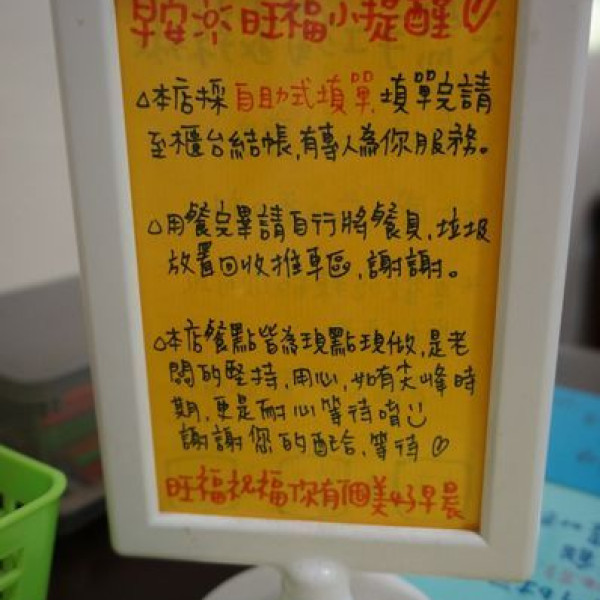 早安 旺福小提醒♡
△本店採自助式填單,填單完請
至櫃台結帳,有專人為你服務。
△用餐完畢請自行將餐具,垃圾
放置回收推車區,謝謝。
△本店餐點皆為現點現做,是老
闆的堅持,用心,如有尖峰時
期,更是耐心等待唷
謝謝您的配合,等待♡
旺福祝福你有個美好早晨